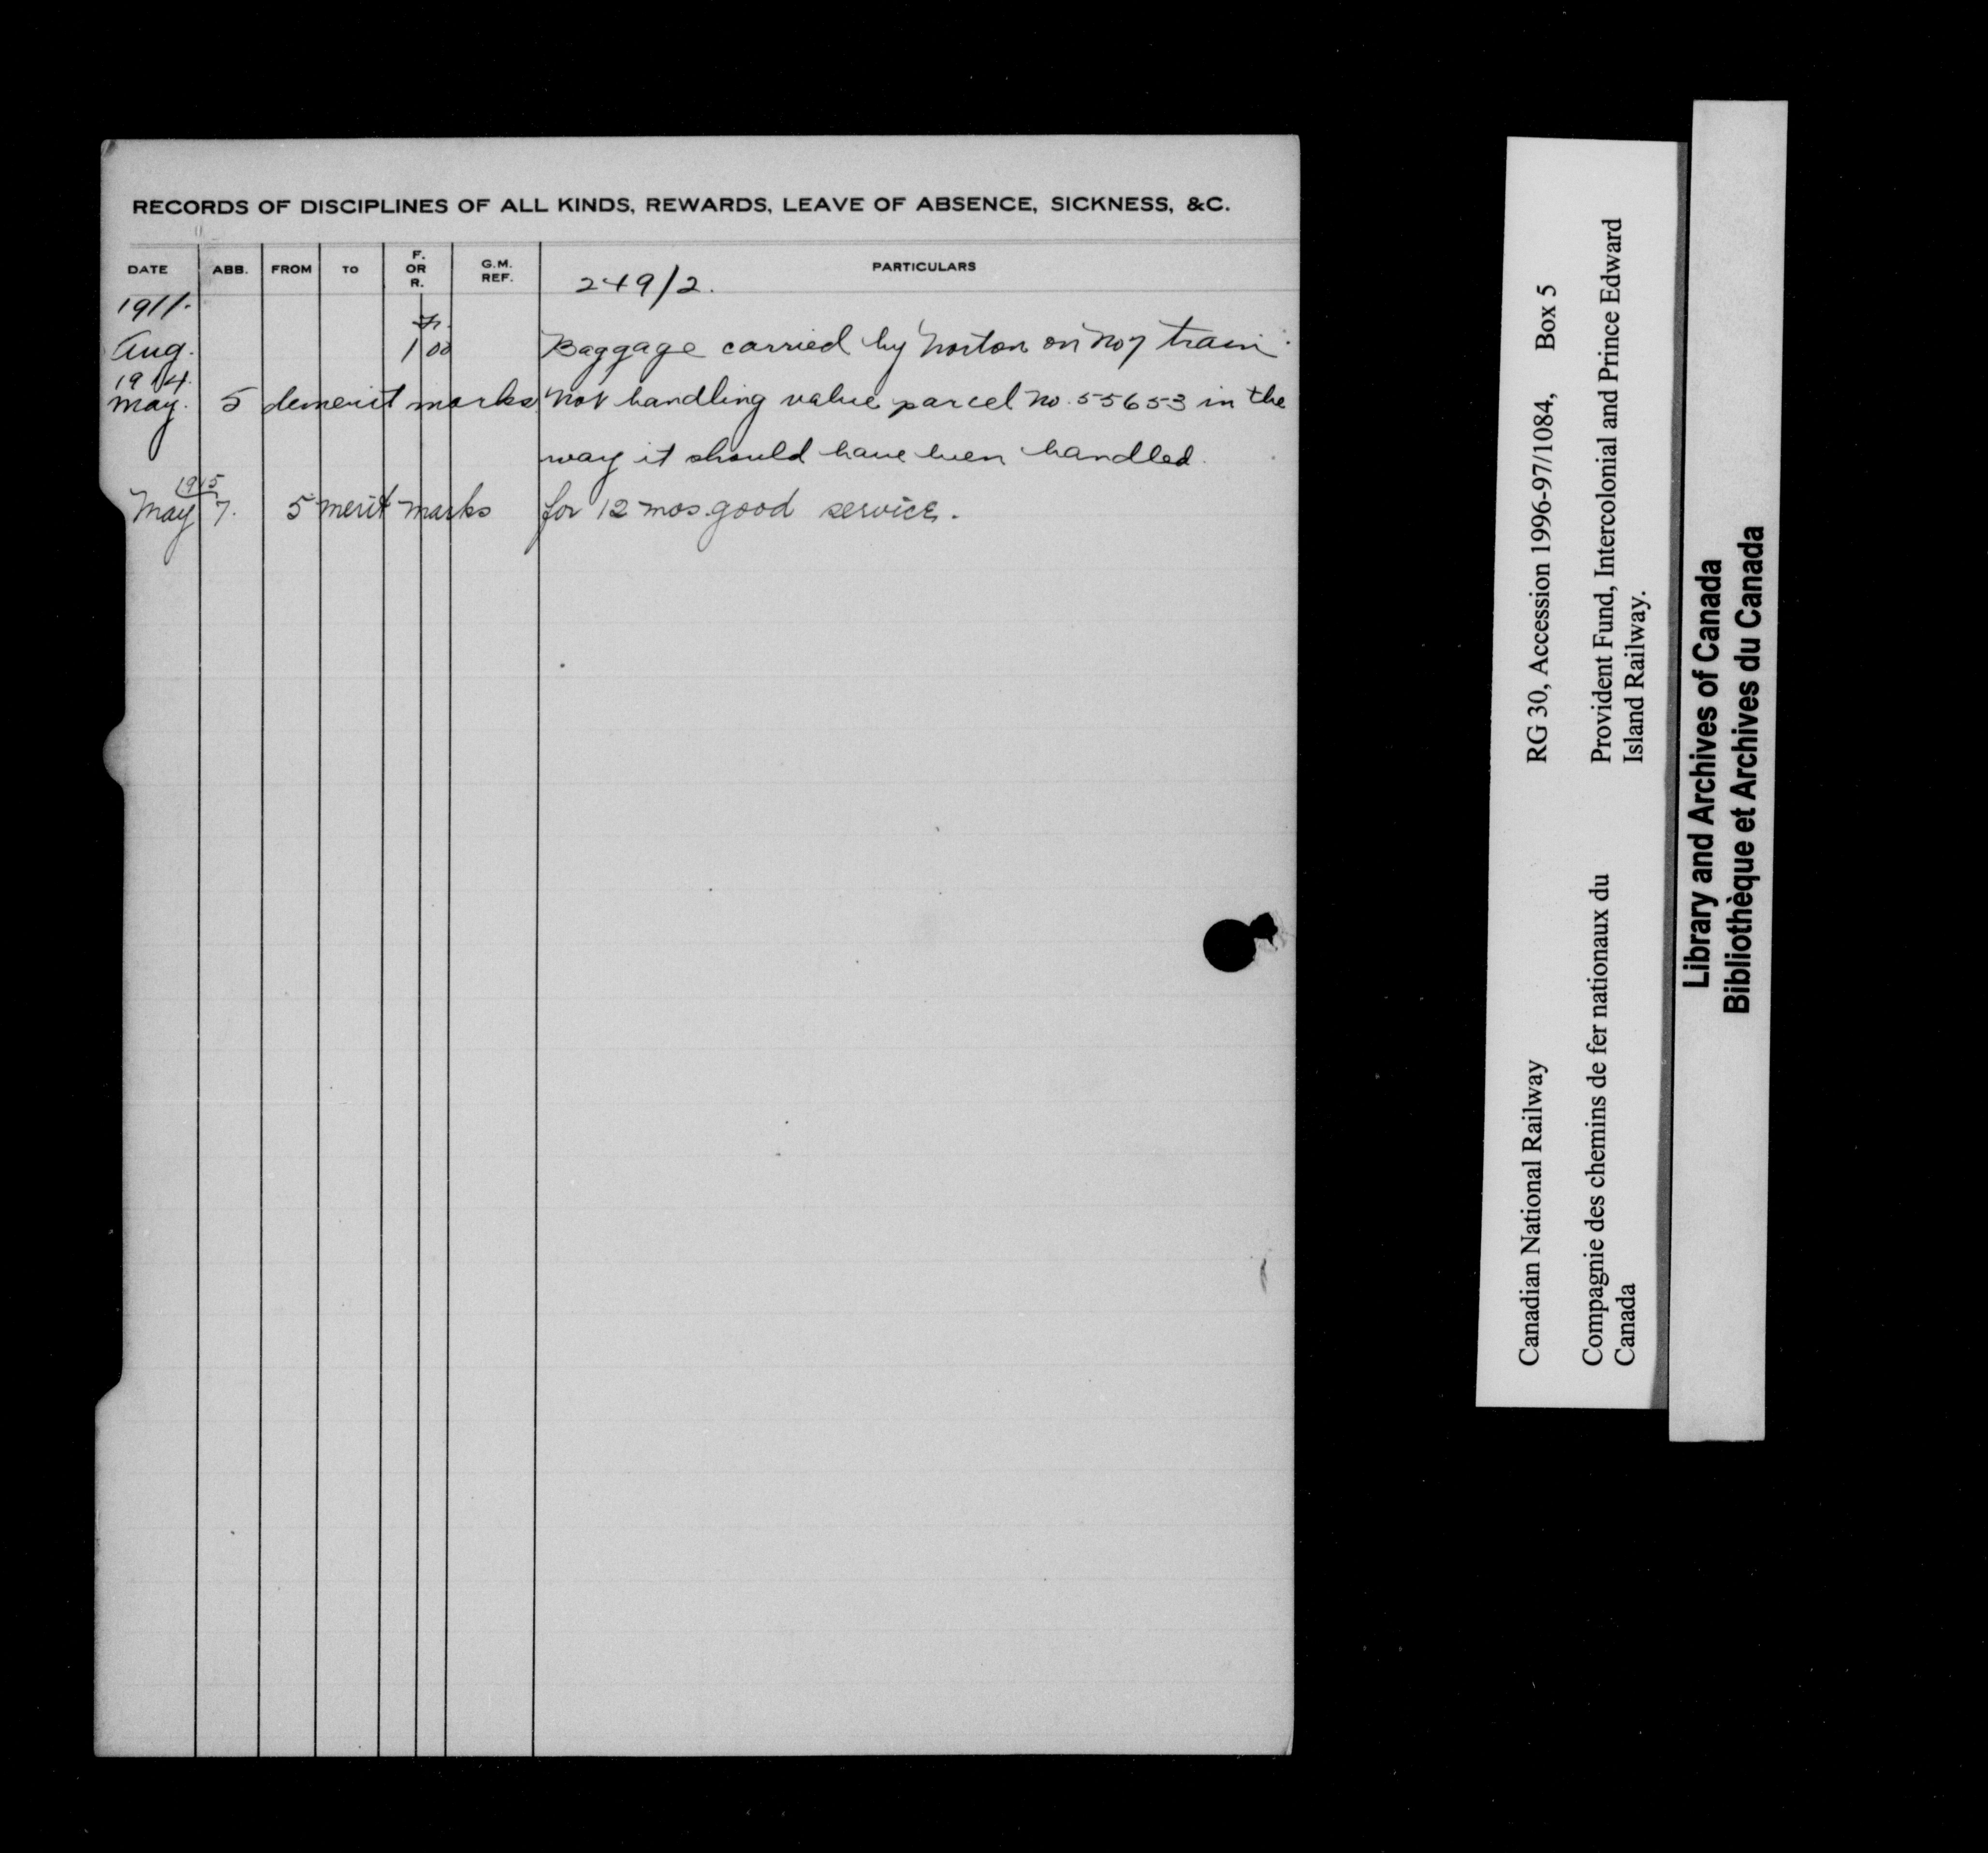 RECORDS OF DISCIPLINES OF ALL KINDS, REWARDS, LEAVE OF ABSENCE, SICKNESS, &C.
DATE ABB. FROM TO F. OR R. G.M. REF. PARTICULARS
249/2.
1911.
Aug. 1 00 Baggage carried by Norton on No 7 train.
1914.
May. 5 demerit marks Not handling value parcel No. 55653 in the
way it should have been handled.
1915
May 7. 5 merit marks for 12 mos. good service.
Canadian National Railway RG 30, Accession 1996-97/1084, Box 5
Compagnie des chemins de fer nationaux du Provident Fund, Intercolonial and Prince Edward
Canada Island Railway.
Library and Archives of Canada
Bibliothèque et Archives du Canada